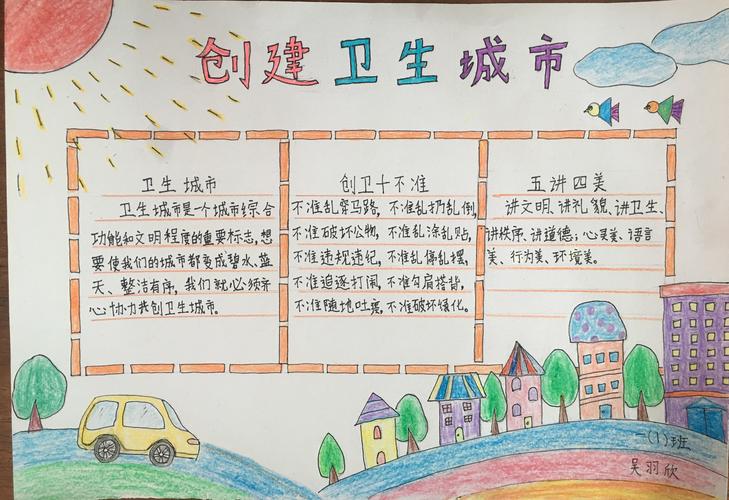 创建卫生城市
卫生城市
卫生城市是一个城市综合
功能和文明程度的重要标志,想
要使我们的城市都变成碧水、蓝
天、整洁有序,我们就必须齐
心协力共创卫生城市。
创卫十不准
不准乱穿马路,不准乱扔乱倒,
不准破坏公物,不准乱涂乱贴,
不准违规违纪,不准乱停乱摆,
不准追逐打闹,不准勾肩搭背,
不准随地吐痰,不准破坏绿化。
五讲四美
讲文明、讲礼貌、讲卫生、
讲秩序、讲道德;心灵美、语言
美、行为美、环境美。
一(1)班
吴羽欣